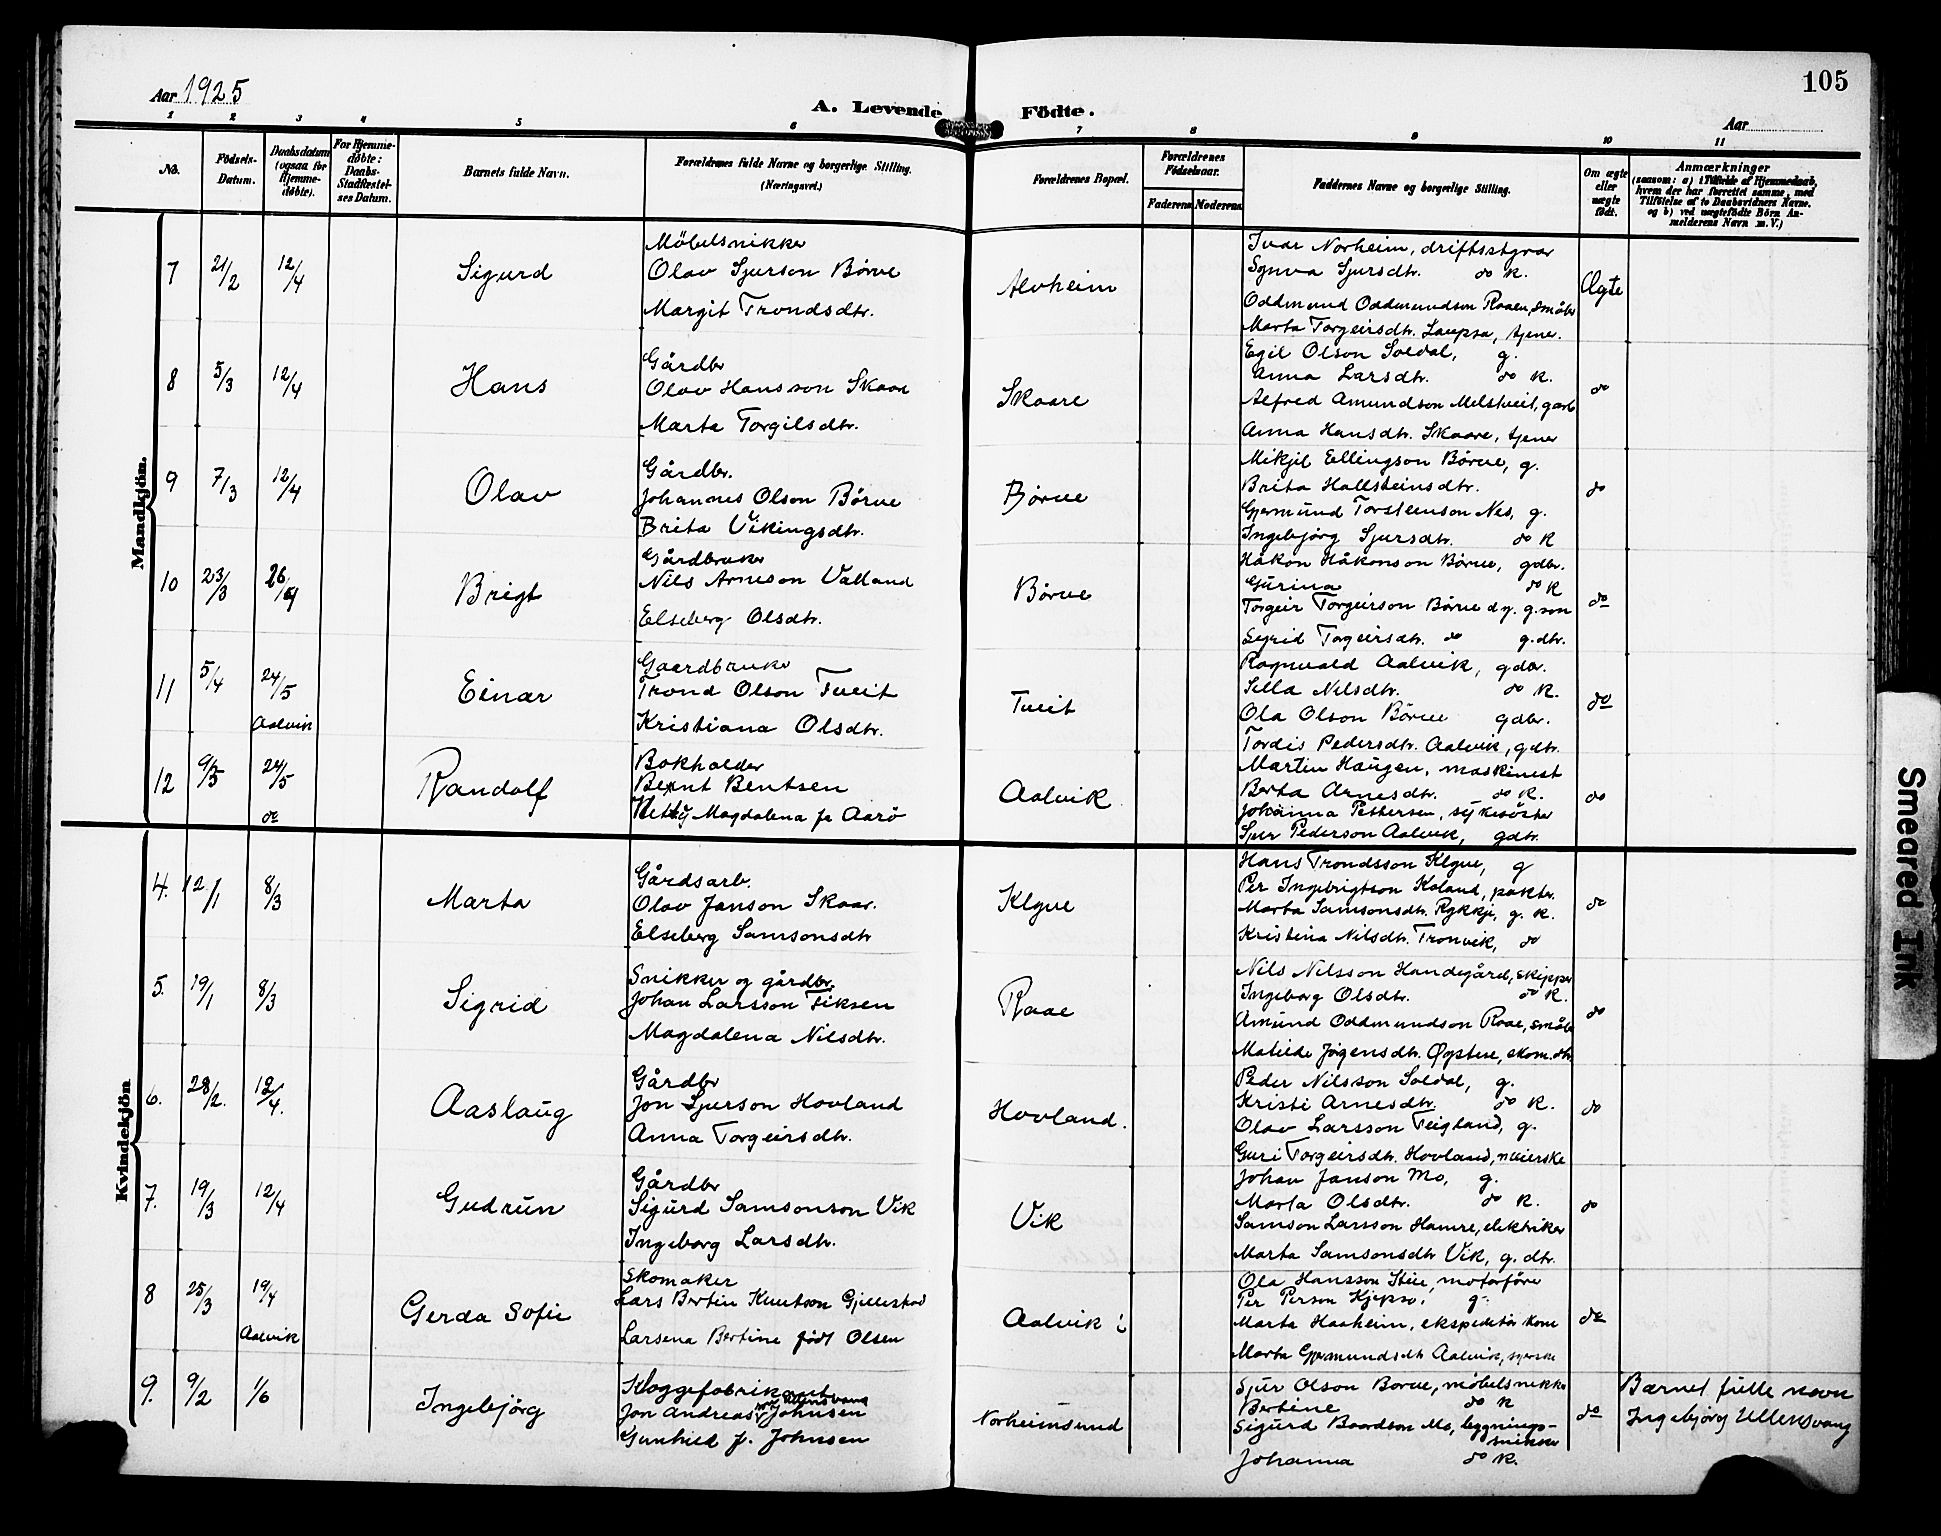 105
Aar 1925
A. Levende Födte.
Aar
1 2 3 4 5 6 7 8 9 10 11
No.
Födsels-Datum.
Daabsdatum (ogsaa for Hjemme-døbte).
For Hjemme-døbte: Daabs-Stadfæstel-ses Datum.
Barnets fulde Navn.
Forældrenes fulde Navne og borgerlige Stilling. (Næringsvei.)
Forældrenes Bopæl.
Forældrenes Födselsaar.
Faderens Moderens
Faddernes Navne og borgerlige Stilling.
Om ægte eller uægte födt.
Anmærkninger
(saasom: a) i Tilfælde af Hjemmedaab,
hvem der har forrettet samme, med
Tilföielse af to Daabsvidners Navne,
og b) ved uægtefödte Börn An-
melderens Navn m. V.)
Mandkjön.
7 21/2 12/4 Sigurd
Möbelsnikker
Olav Sjurson Börve
Margit Trondsdtr.
Alvheim
Ivar Norheim, driftsstyrar
Synva Sjursdtr. do K.
Oddmund Oddmundson Raaen, småbr
Marta Torgeirsdtr. Laupsa, tjener.
Ægte
8 5/3 12/4 Hans
Gårdbr
Olav Hansson Skaar
Marta Torgilsdtr.
Skaare
Egil Olson Soldal, g.
Anna Larsdtr. do K.
Alfred Amundson Melstveit, garb
Anna Hansdtr. Skaare, tjener
do
9 7/3 12/4 Olav
Gårdbr.
Johannes Olson Börve
Brita Vikingsdtr.
Börve
Mikjel Ellingson Börve, g.
Brita Hallsteinsdtr.
Gjermund Torsteinson Nes, g.
Ingebjörg Sjursdtr. do K
do
10 23/3 26/4 Brigt
Gårdbruker
Nils Arneson Valland
Elseberg Olsdtr.
Börve
Håkon Håkonson Börve, gdbr.
Gurina do K
Torgeir Torgeirson Börve d.y. g.son
Sigrid Torgeirsdtr. do g.dtr.
do
11 5/4 24/5 Aalvik Einar
Gaardbruker
Trond Olson Tveit
Kristiana Olsdtr.
Tveit
Ragnvald Aalvik, gdbr.
Silla Nilsdtr. do K.
Ola Olson Börve gdbr.
Tordis Pedersdtr. Aalvik, gdtr.
do
12 9/5 24/5 do Randolf
Bokholder
Bernt Bentsen
Hetty Magdalena f. Aarö
Aalvik
Martin Haugen, maskinist
Berta Arnesdtr. do K.
Johanna Pettersen, sykesöster
Sjur Pederson Aalvik, gdtr.
do
Kvindekjön
4. 12/1 8/3 Marta
Gårdsarb.
Olav Janson Skaar.
Elseberg Samsonsdtr
Klyve
Hans Trondsson Klyve, g
Per Ingebrigtson Koland, pakter.
Marta Samsonsdtr. Rykkje, g. K.
Kristina Nilsdtr. Tronvik, do
do
5. 19/1 8/3 Sigrid
Snikker og gårdbr.
Johan Larsson Fiksen
Magdalena Nilsdtr.
Raae
Nils Nilsson Handegård, skipper
Ingeborg Olsdtr. do K.
Amund Oddmundson Raae, småbr
Matilde Jörgensdtr. Øystese, skom.dtr.
do
6. 28/2. 12/4. Aaslaug
Gårdbr
Jon Sjurson Hovland
Anna Torgeirsdtr.
Hovland.
Peder Nilsson Soldal, g.
Kristi Arnesdtr. do K.
Olav Larsson Teigland, g.
Guri Torgeirsdtr. Hovland, meierske
do
7. 19/3 12/4 Gudrun
Gårdbr
Sigurd Samsonson Vik
Ingeborg Larsdtr.
Vik
Johan Janson Mo, g.
Marta Olsdtr. do K.
Samson Larsson Hamre, elektriker
Marta Samsonsdtr Vik, g. dtr.
do
8 25/3 19/4 Aalvik Gerda Sofie
Skomaker
Lars Bertin Knutson Gjillestad
Larsena Bertine född Olsen
Aalvik
Ola Hansson Steie, motorförer
Per Person Kjepso, g.
Marta Haaheim, ekspeditör kone
Marta Gjermundsdtr Aalvik, syerske
do
9. 9/2 1/6 Ingebjörg
Kloggefabrikant
Jon Andreas Johnsen
Gunhild f. Johnsen
Norheimsund
Sjur Olson Borve, möbelsnikker
Bertine do K
Sigurd Baardson Mo, bygnings-
snikker
Johanna do K.
do
Barnet fulle navn
Ingebjörg Ullensvang
Smeared Ink